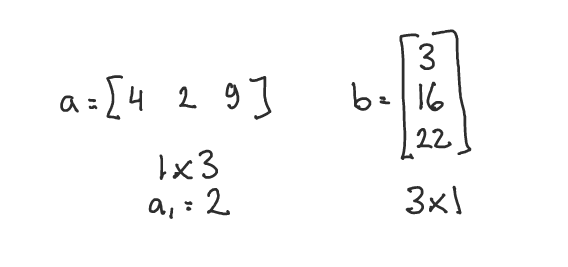 a = [4 2 9]
1x3
a₁ = 2
b = [3
16
22]
3x1